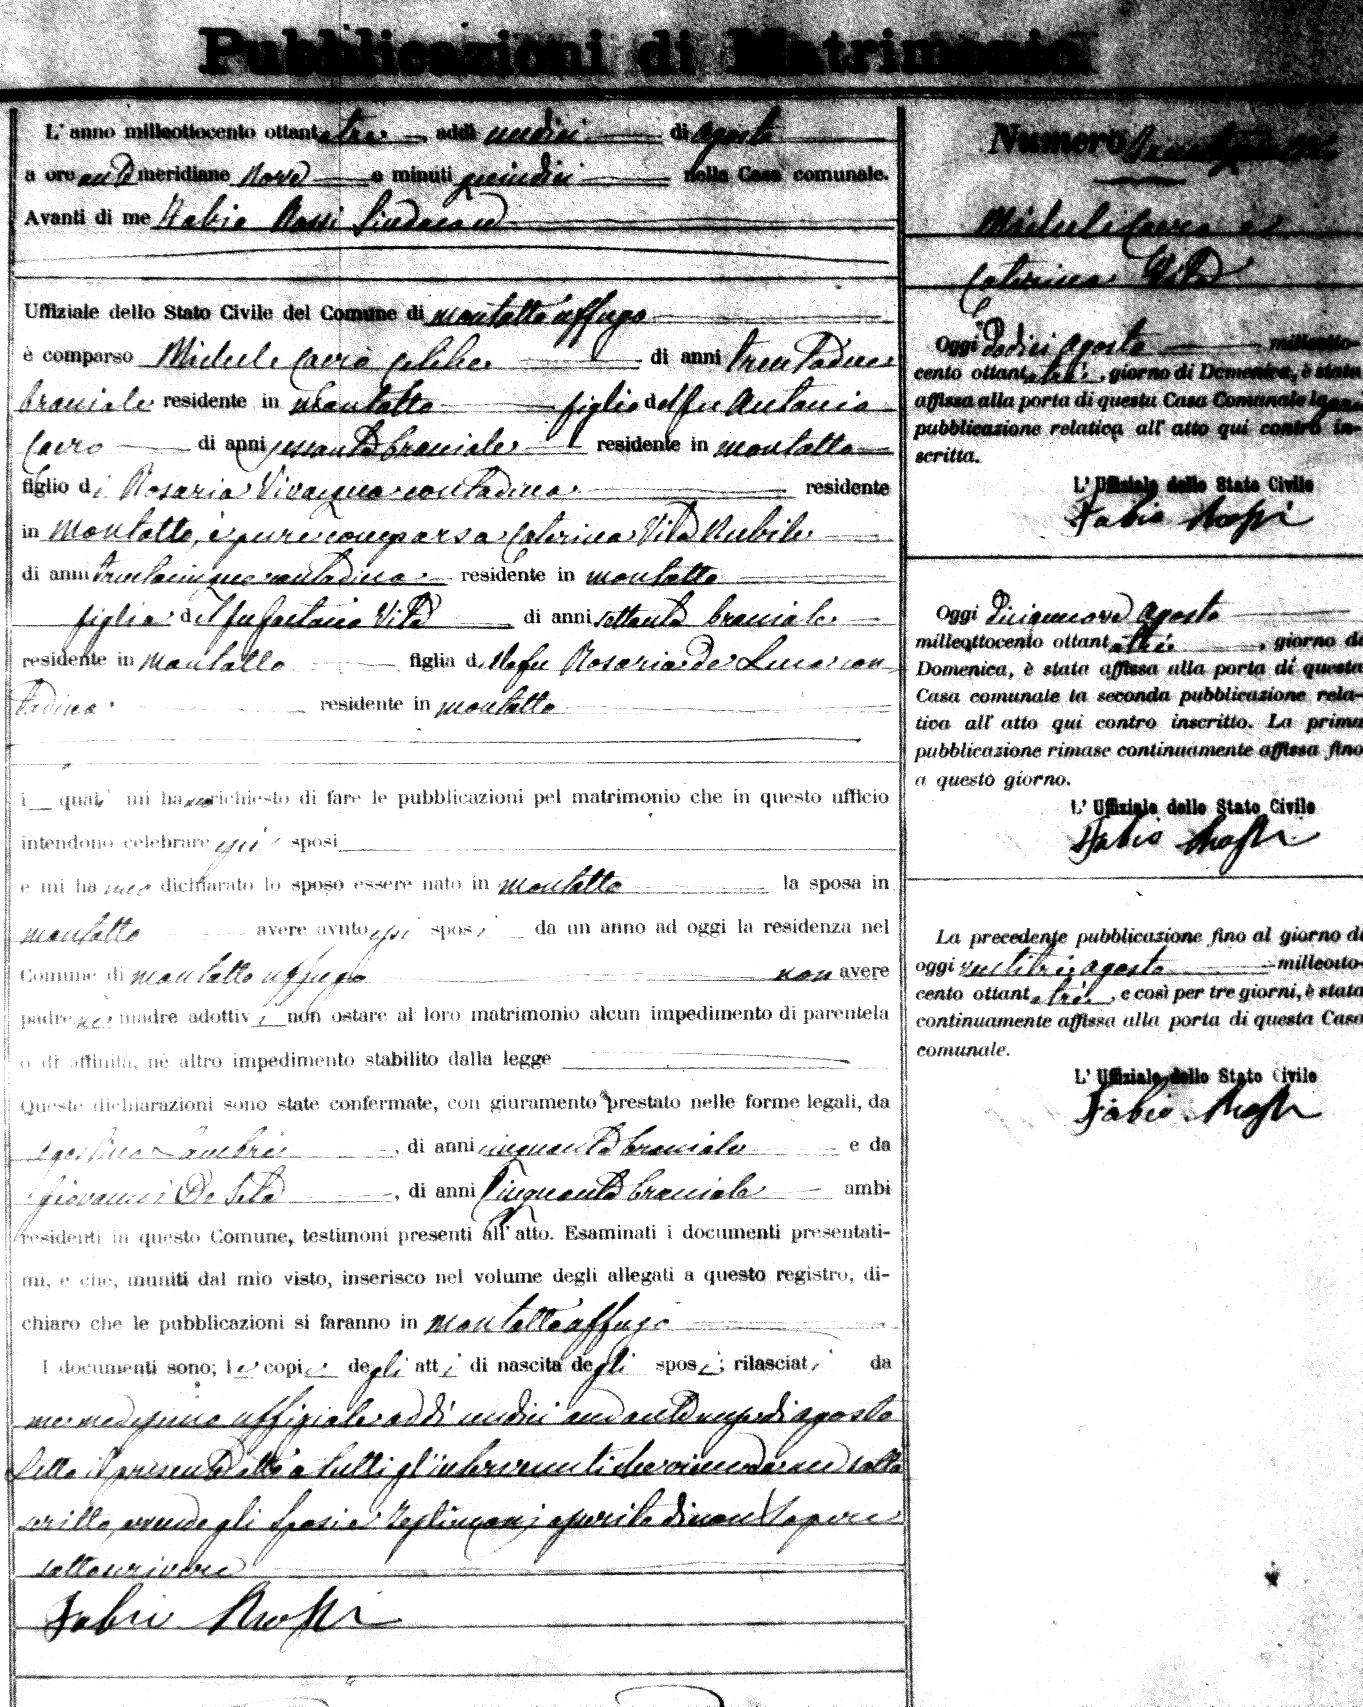 Pubblicazioni di Matrimonio
L' anno milleottocento ottantatre, addì undici di Agosto
a ore anti meridiane Nove e minuti quindici nella Casa comunale.
Avanti di me Fabio Rossi Sindaco
Uffiziale dello Stato Civile del Comune di Montalto Uffugo
è comparso Michele Cairo celibe di anni trentadue
bracciale residente in Montalto figlio del fu Antonio
Cairo di anni sessanta bracciale residente in Montalto
figlio di Rosaria Vivacqua contadina residente
in Montalto, è pure comparsa Caterina Vita Nubile
di anni trentacinque contadina residente in Montalto
figlia del fu Gaetano Vita di anni settanta bracciale
residente in Montalto figlia della fu Rosaria De Luca con
tadina residente in Montalto
i quali mi hanno richiesto di fare le pubblicazioni pel matrimonio che in questo ufficio
intendono celebrare essi sposi
e mi hanno dichiarato lo sposo essere nato in Montalto la sposa in
Montalto avere avuto essi sposi da un anno ad oggi la residenza nel
Comune di Montalto Uffugo non avere
padre nè madre adottivi non ostare al loro matrimonio alcun impedimento di parentela
o di affinità, nè altro impedimento stabilito dalla legge
Queste dichiarazioni sono state confermate, con giuramento prestato nelle forme legali, da
Agostino, di anni cinquanta bracciale e da
Giovanni De Seta, di anni Cinquanta bracciale ambi
residenti in questo Comune, testimoni presenti all' atto. Esaminati i documenti presentati-
mi, e che, muniti dal mio visto, inserisco nel volume degli allegati a questo registro, di-
chiaro che le pubblicazioni si faranno in Montalto Uffugo
I documenti sono; le copie degli atti di nascita degli sposi; rilasciati da
me medesimo uffiziale addì undici andante mese di agosto
Letto il presente atto a tutti gl'intervenuti sotto
scritto, avendo gli Sposi e Testimoni asserito di non sapere
sottoscrivere
Fabio Rossi
Numero
Michele Cairo e
Caterina Vita
Oggi Dodici Agosto milleotto-
cento ottantatrè, giorno di Domenica, è stata
affissa alla porta di questa Casa Comunale la
pubblicazione relativa all' atto qui contro in-
scritta.
L' Uffiziale dello Stato Civile
Fabio Rossi
Oggi diciannove Agosto
milleottocento ottantatrè, giorno di
Domenica, è stata affissa alla porta di questa
Casa comunale la seconda pubblicazione rela-
tiva all' atto qui contro inscritto. La prima
pubblicazione rimase continuamente affissa fino
a questo giorno.
L' Uffiziale dello Stato Civile
Fabio Rossi
La precedente pubblicazione fino al giorno di
oggi ventitrè agosto milleotto-
cento ottantatrè, e così per tre giorni, è stata
continuamente affissa alla porta di questa Casa
comunale.
L' Uffiziale dello Stato Civile
Fabio Rossi